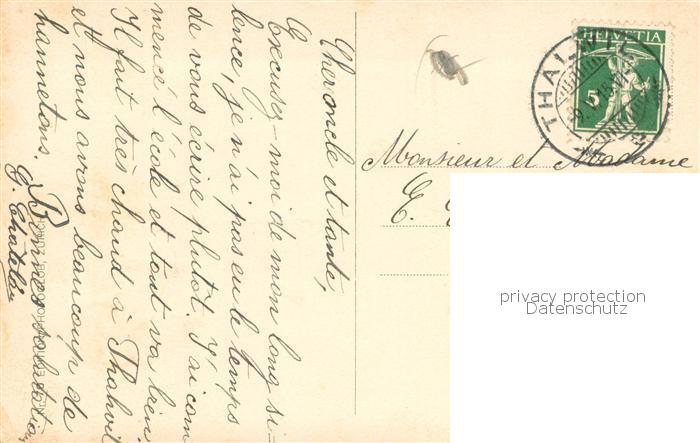 Cher oncle et tante,
Excusez-moi de mon long si-
lence, je n'ai pas eu le temps
de vous écrire plutôt. J'ai com
mencé l'école et tout va bien.
Il fait très chaud à Thalwil
et nous avons beaucoup de
hannetons. Bonnes salutation
G. Châtelain
HELVETIA
5
THALWIL
Monsieur et Madame
privacy protection
Datenschutz